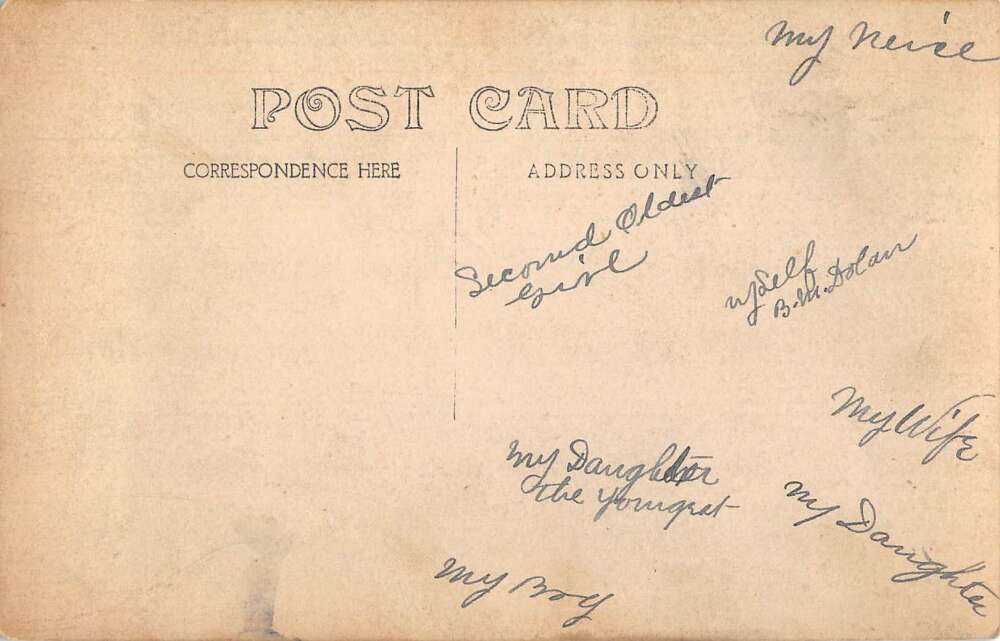 My Neice
POST CARD
CORRESPONDENCE HERE
ADDRESS ONLY
Second Oldest
Girl
myself
B.M. Dolan
My Wife
My Daughter
the youngest
My Daughter
My Boy